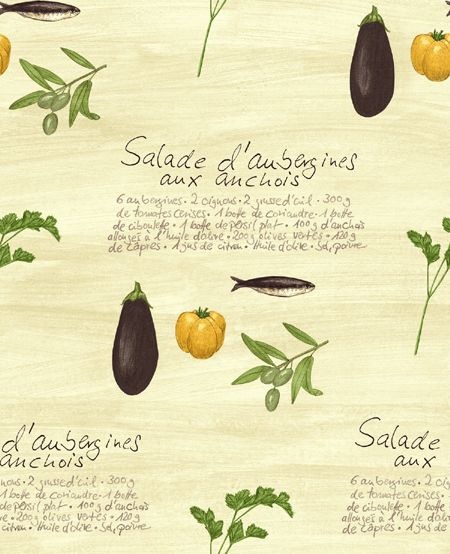 Salade d'aubergines
aux anchois
6 aubergines • 2 oignons • 2 gousse d'ail • 300g
de tomates cerises • 1 botte de coriandre • 1 botte
de ciboulette • 1 botte de persil plat • 100g d'anchois
allongés à l'huile d'olive • 200g olives vertes • 120g
de câpres • 1 jus de citron • Huile d'olive • Sel, poivre
d'aubergines
anchois
nons • 2 gousse d'ail • 300g
1 botte de coriandre • 1 botte
de persil plat • 100g d'anchois
ive • 200g olives vertes • 120g
itron • Huile d'olive • Sel, poivre
Salade
aux
6 aubergines • 2 oignons
de tomates cerises
de ciboulette • 1 botte
allongés à l'huile d'olive
de câpres • 1 jus de